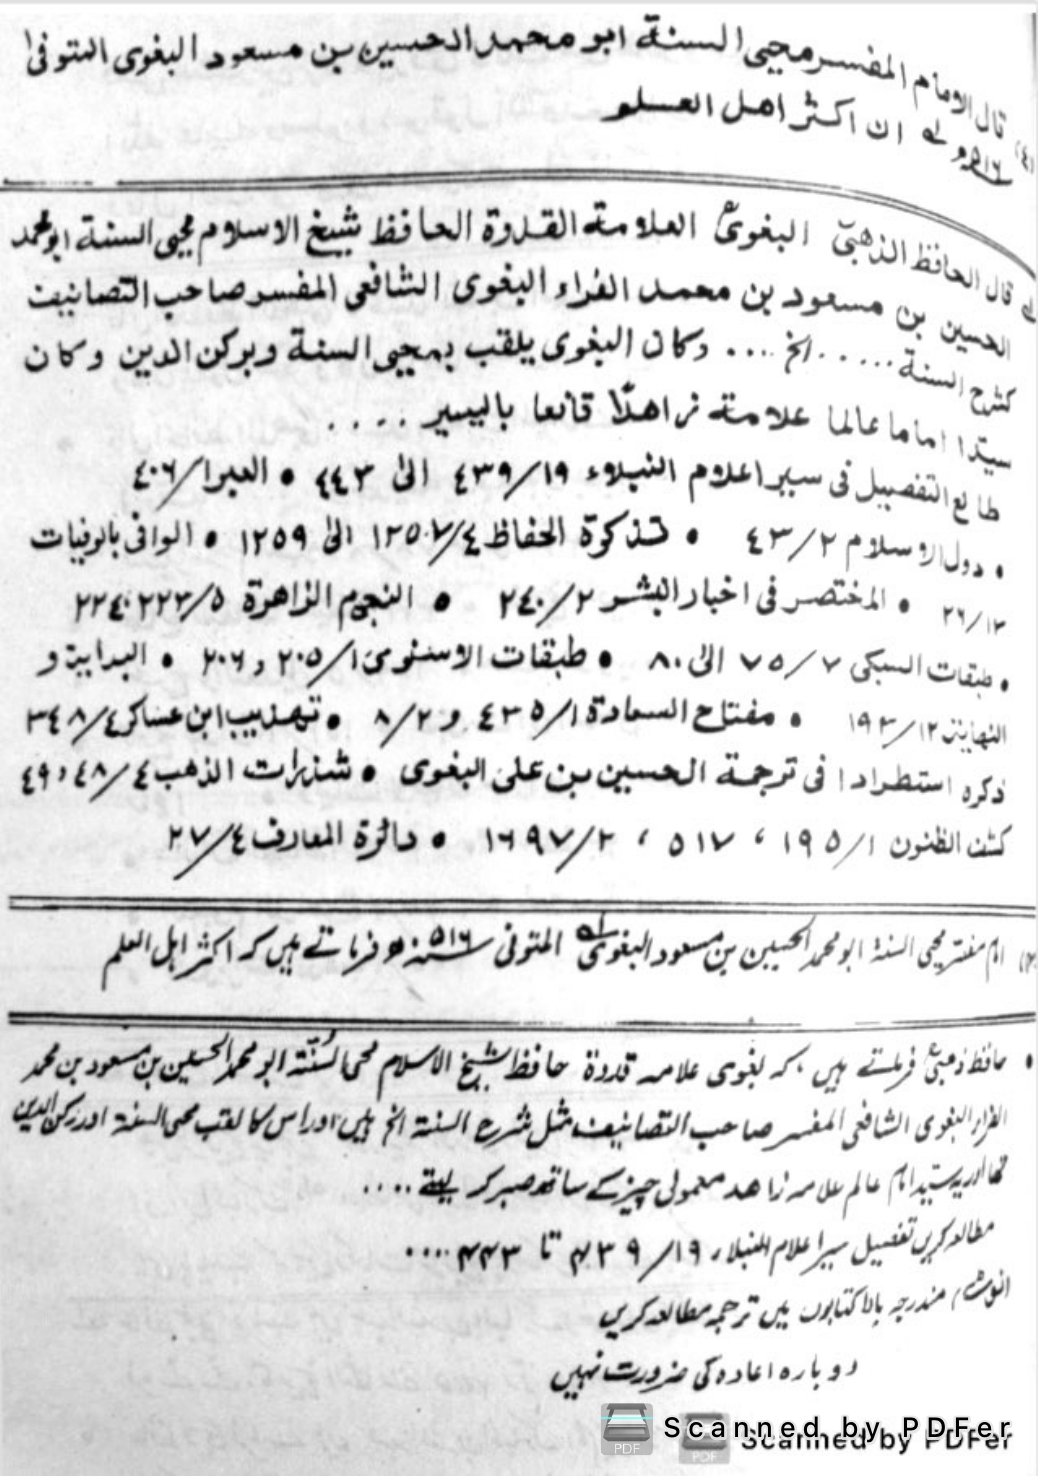 (٤) قال الامام المفسر محيى السنة ابو محمد الحسين بن مسعود البغوى المتوفى
٥١٦ھ ان اكثر اهل العلم
قال الحافظ الذهبىؒ البغوىؒ العلامة القدوة الحافظ شيخ الاسلام محيى السنة ابو محمد
الحسين بن مسعود بن محمد الفراء البغوى الشافعى المفسر صاحب التصانيف
كشرح السنة ..... الخ .... وكان البغوى يلقب بمحيى السنة وبركن الدين وكان
سيّدا اماما عالما علامة زاهدًا قانعا باليسير ....
طالع التفصيل فى سير اعلام النبلاء ١٩/٤٣٩ الى ٤٤٣ • العبرا/٤٠٦
• دول الاسلام ٢/٤٣ • تذكرة الحفاظ ٤/١٢٥٧ الى ١٢٥٩ • الوافى بالوفيات
١٣/٢٦ • المختصر فى اخبار البشر ٢/٢٤٠ • النجوم الزاهرة ٥/٢٢٣ ٢٢٤
• طبقات السبكى ٧/٧٥ الى ٨٠ • طبقات الاسنوى ١/٢٠٥ و ٢٠٦ • البداية و
النهاية ١٢/١٩٣ • مفتاح السعادة ١/٤٣٥ و ٢/٨ • تهذيب ابن عساكر ٤/٣٤٨
ذكره استطرادا فى ترجمة الحسين بن على البغوى • شذرات الذهب ٤/٤٨ ، ٤٩
كشف الظنون ١/١٩٥ ، ٥١٧ ، ٢/١٦٩٧ • دائرة المعارف ٤/٢٧
امام مفسر محیی السنۃ ابو محمد الحسین بن مسعود البغویؒ المتوفی ۵۱۶ھ فرماتے ہیں کہ اکثر اہل العلم
• حافظ ذھبیؒ فرماتے ہیں ، کہ بغوی علامہ قدوۃ حافظ شیخ الاسلام محی السنّۃ ابو محمد الحسین بن مسعود بن محمد
الفراء البغوی الشافعی المفسر صاحب التصانیف مثل شرح السنۃ الخ ہیں اور اس کا لقب محی السنۃ اور رکن الدین
تھا اور یہ سید امام عالم علامہ زاھد معمولی چیز کے ساتھ صبر کر لیتے ....
مطالعہ کریں تفصیل سیر اعلام النبلاء ۱۹/۴۳۹ تا ۴۴۳ ....
مندرجہ بالا کتابوں میں ترجمہ مطالعہ کریں
دوبارہ اعادہ کی ضرورت نہیں
Scanned by PDFer
Scanned by PDFer